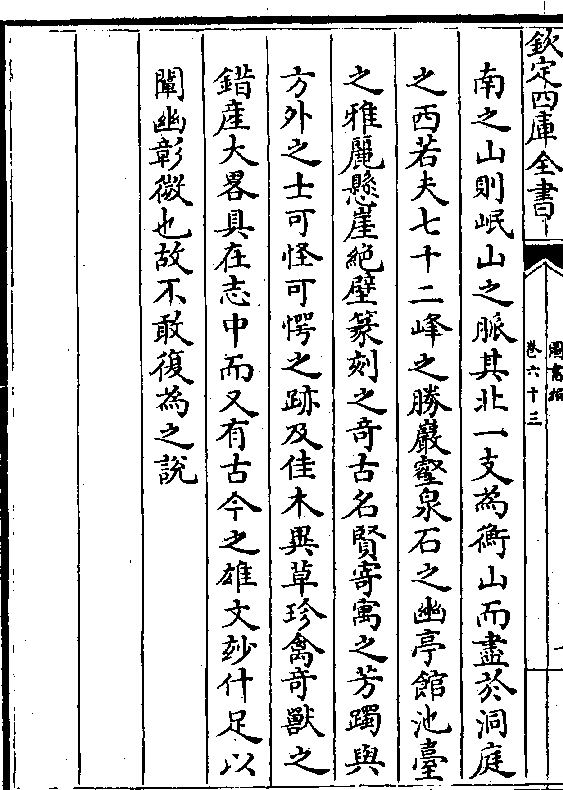 欽定四庫全書
圖書編
卷六十三
南之山則岷山之脈其北一支為衡山而盡於洞庭
之西若夫七十二峰之勝巖壑泉石之幽亭館池臺
之雅麗懸崖絕壁篆刻之奇古名賢寄寓之芳躅與
方外之士可怪可愕之跡及佳木異草珍禽奇獸之
錯産大畧具在志中而又有古今之雄文妙什足以
闡幽彰微也故不敢復為之說